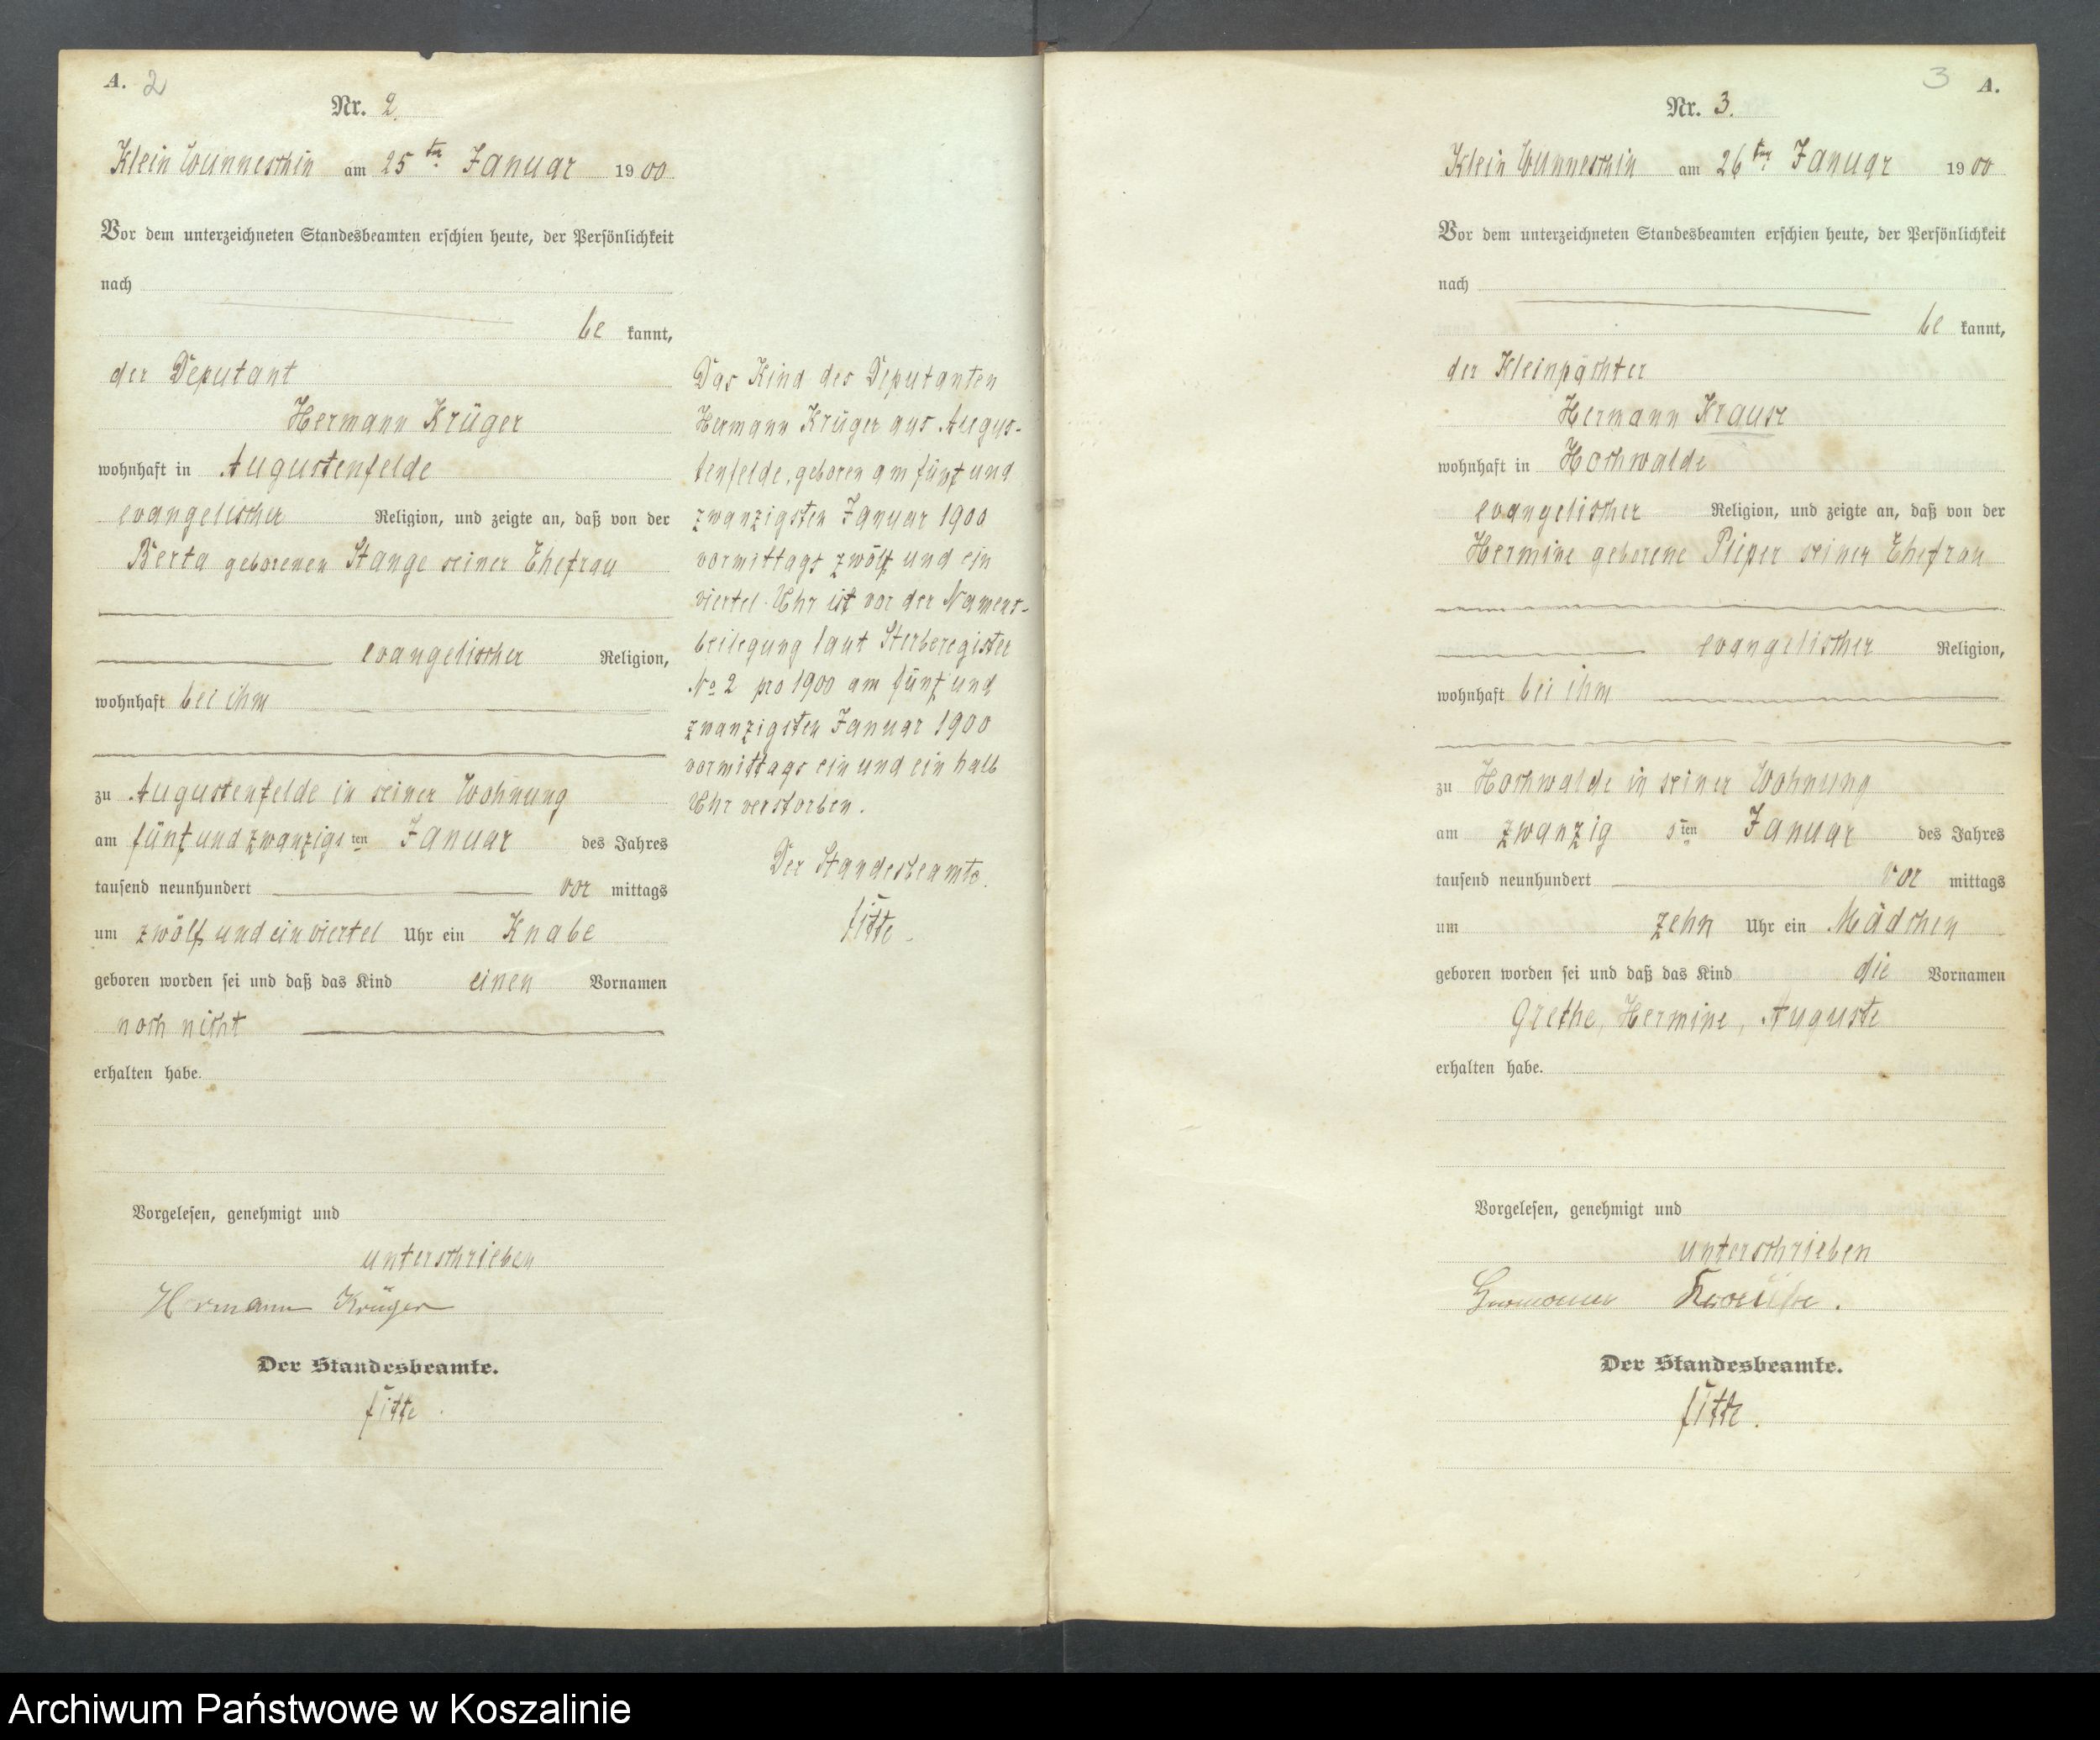 A. 2
Nr. 2.
Klein Wunneschin am 25ten Januar 1900
Vor dem unterzeichneten Standesbeamten erschien heute, der Persönlichkeit
nach
be kannt,
der Deputant
Hermann Krüger
wohnhaft in Augustenfelde
evangelischer Religion, und zeigte an, daß von der
Berta geborenen Stange seiner Ehefrau
evangelischer Religion,
wohnhaft bei ihm
zu Augustenfelde in seiner Wohnung
am fünf und zwanzigsten Januar des Jahres
tausend neunhundert vor mittags
um zwölf und ein viertel Uhr ein Knabe
geboren worden sei und daß das Kind einen Vornamen
noch nicht
erhalten habe.
Vorgelesen, genehmigt und
unterschrieben
Hermann Krüger
Der Standesbeamte.
Das Kind des Deputanten
Hermann Krüger aus Augus-
tenfelde, geboren am fünf und
zwanzigsten Januar 1900
vormittags zwölf und ein
viertel Uhr ist vor der Namens-
beilegung laut Sterberegister
No 2 pro 1900 am fünf und
zwanzigsten Januar 1900
vormittags ein und ein halb
Uhr verstorben.
Der Standesbeamte.
3 A.
Nr. 3.
Klein Wunneschin am 26ten Januar 1900
Vor dem unterzeichneten Standesbeamten erschien heute, der Persönlichkeit
nach
be kannt,
der Kleinpächter
Hermann Krause
wohnhaft in Hochwalde
evangelischer Religion, und zeigte an, daß von der
Hermine geborene Pieper seiner Ehefrau
evangelischer Religion,
wohnhaft bei ihm
zu Hochwalde in seiner Wohnung
am zwanzig sten Januar des Jahres
tausend neunhundert vor mittags
um zehn Uhr ein Mädchen
geboren worden sei und daß das Kind die Vornamen
Grethe, Hermine, Auguste
erhalten habe.
Vorgelesen, genehmigt und
unterschrieben
Hermann Krause.
Der Standesbeamte.
Archiwum Państwowe w Koszalinie